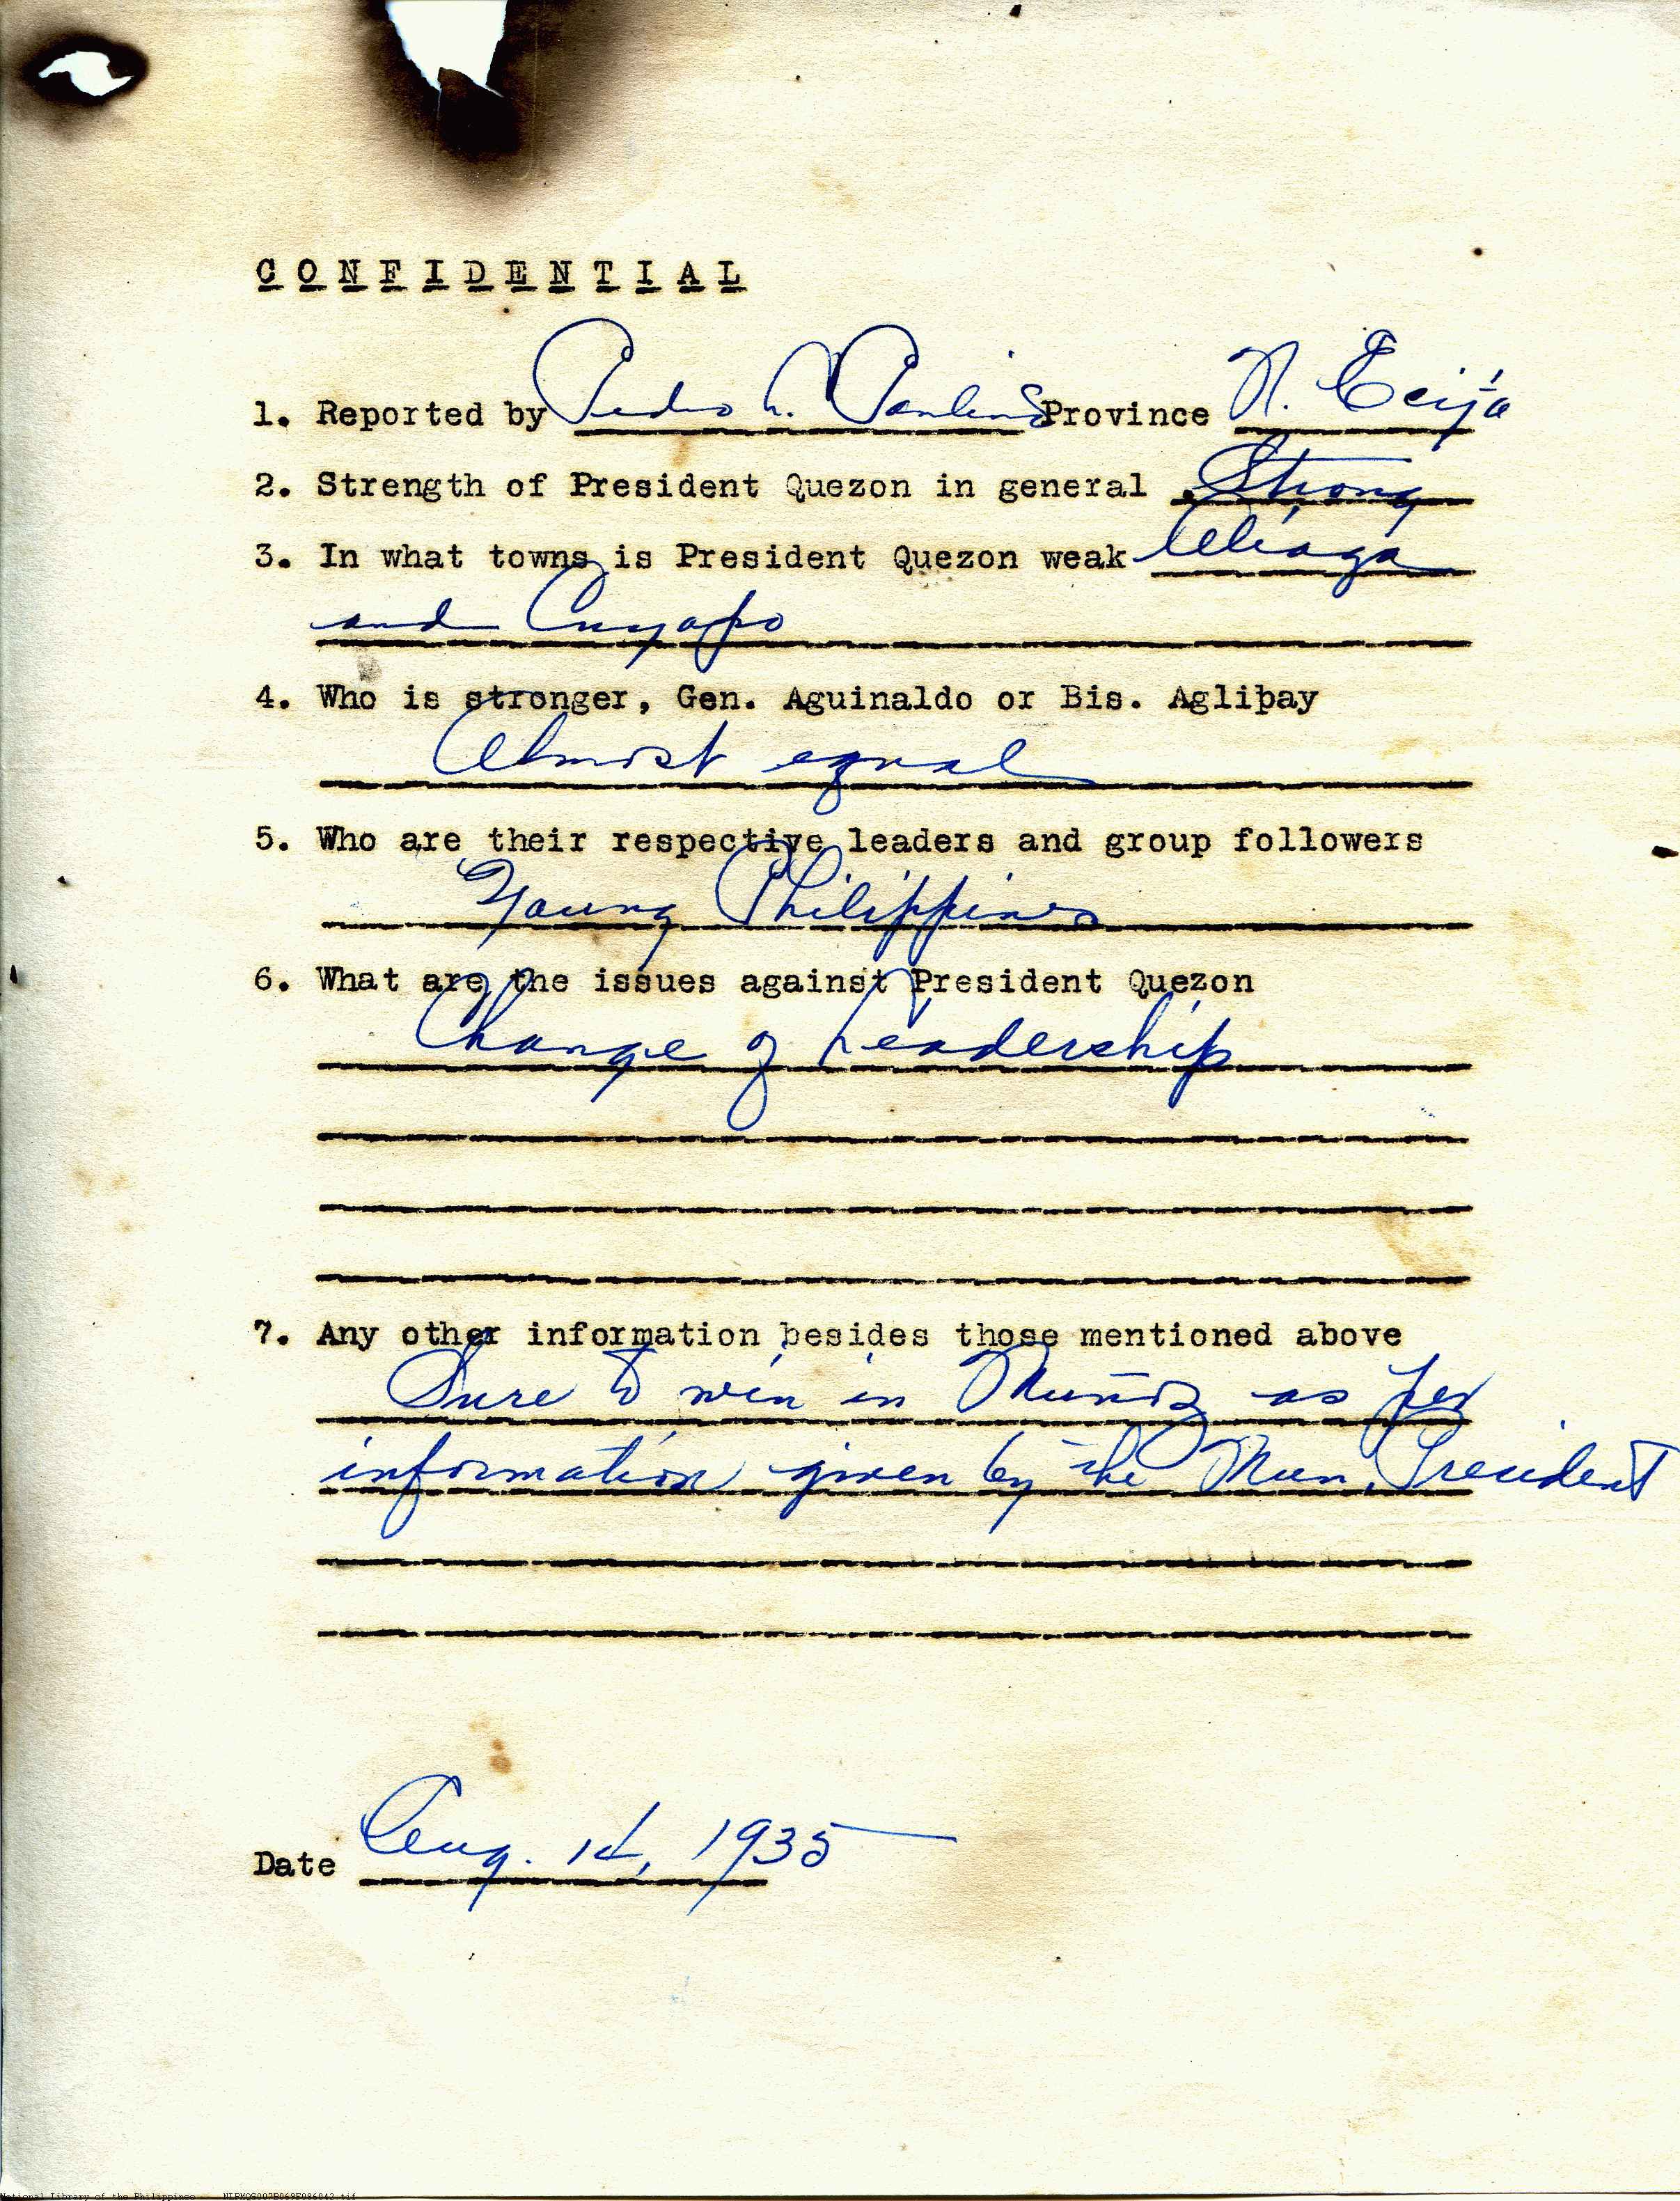 CONFIDENTIAL
1. Reported by Pedro Paulino Province N. Ecija
2. Strength of President Quezon in general Strong
3. In what towns is President Quezon weak Aliaga
and Cuyapo
4. Who is stronger, Gen. Aguinaldo or Bis. Aglipay
Almost equal
5. Who are their respective leaders and group followers
Young Philippines
6. What are the issues against President Quezon
Change of Leadership
7. Any other information besides those mentioned above
Sure to win in Muñoz as per
information given by the Mun. President
Date Aug. 14, 1935
National Library of the Philippines